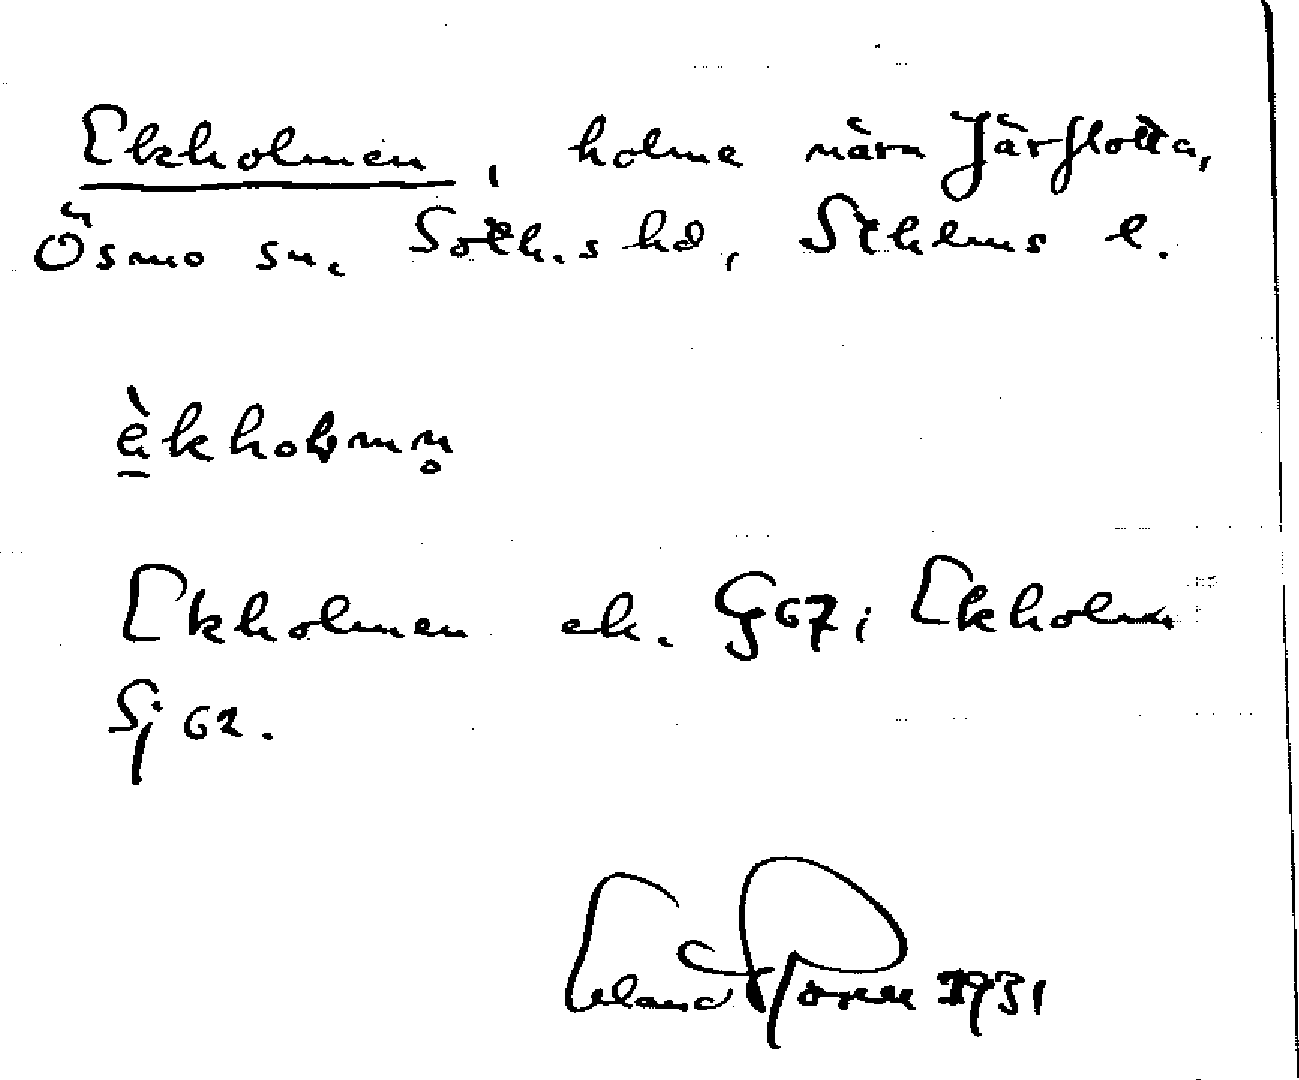 Ekholmen, holme nära Järflotta,
Ösmo sn. Soth.s hd, Sthlms l.
èkholmn̥
Ekholmen ek. G67; Ekholm
Sj 62.
Erland Rosell 1931